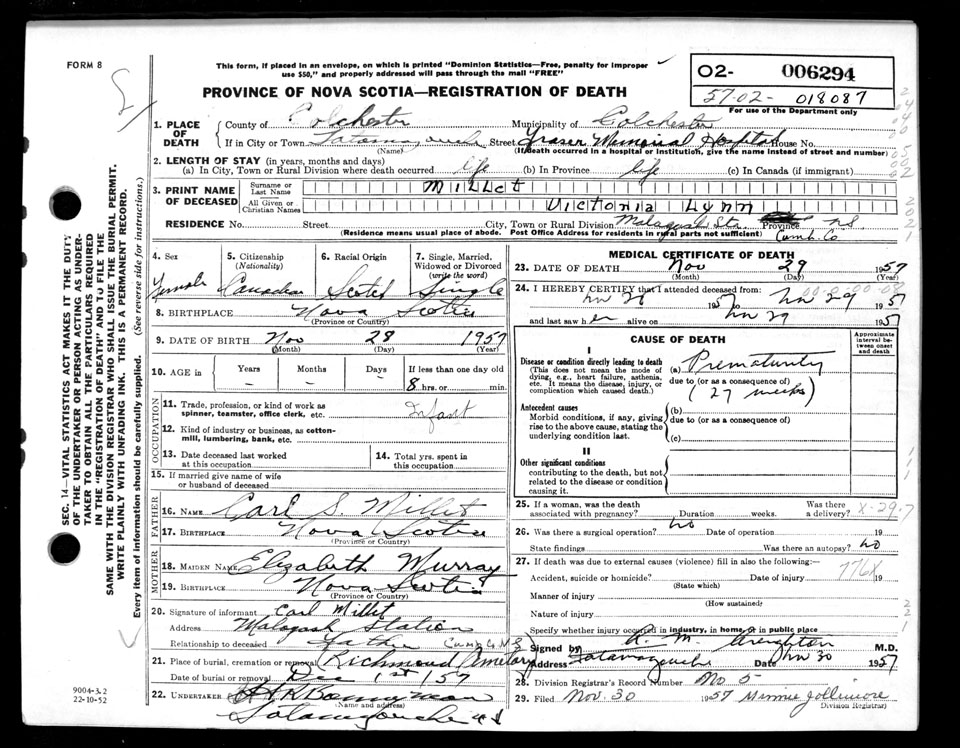 FORM 8
This form, if placed in an envelope, on which is printed "Dominion Statistics—Free, penalty for improper
use $50," and properly addressed will pass through the mail "FREE"
PROVINCE OF NOVA SCOTIA—REGISTRATION OF DEATH
02- 006294
57-02- 018087
For use of the Department only
1. PLACE OF DEATH
County of Colchester Municipality of Colchester
If in City or Town Tatamagouche Street Fraser Memorial Hospital House No.
(Name) (If death occurred in a hospital or institution, give the name instead of street and number)
2. LENGTH OF STAY (in years, months and days)
(a) In City, Town or Rural Division where death occurred life (b) In Province life (c) In Canada (if immigrant)
3. PRINT NAME OF DECEASED
Surname or Last Name Millet
All Given or Christian Names Victoria Lynn
RESIDENCE No. Street City, Town or Rural Division Malagash Stn. Province N.S.
(Residence means usual place of abode. Post Office Address for residents in rural parts not sufficient) Cumb. Co
4. Sex Female
5. Citizenship (Nationality) Canadian
6. Racial Origin Scotch
7. Single, Married, Widowed or Divorced (write the word) Single
8. BIRTHPLACE Nova Scotia
(Province or Country)
9. DATE OF BIRTH Nov 28 1957
(Month) (Day) (Year)
10. AGE in Years Months Days If less than one day old
– – – 8 hrs. or min.
OCCUPATION
11. Trade, profession, or kind of work as spinner, teamster, office clerk, etc. Infant
12. Kind of industry or business, as cotton-mill, lumbering, bank, etc.
13. Date deceased last worked at this occupation
14. Total yrs. spent in this occupation
15. If married give name of wife or husband of deceased
FATHER
16. NAME Carl S. Millet
17. BIRTHPLACE Nova Scotia
(Province or Country)
MOTHER
18. MAIDEN NAME Elizabeth Murray
19. BIRTHPLACE Nova Scotia
(Province or Country)
20. Signature of informant Carl Millet
Address Malagash Station
Relationship to deceased Father Cumb Co N.S
21. Place of burial, cremation or removal Richmond Cemetery
Date of burial or removal Dec 1st 157
22. UNDERTAKER
(Name and address)
Tatamagouche N S
MEDICAL CERTIFICATE OF DEATH
23. DATE OF DEATH Nov 29 1957
(Month) (Day) (Year)
24. I HEREBY CERTIFY that I attended deceased from:
Nov 28 1957 to Nov 29 1957
and last saw her alive on Nov 29 1957
CAUSE OF DEATH
Approximate interval between onset and death
I
Disease or condition directly leading to death
(This does not mean the mode of dying, e.g., heart failure, asthenia, etc. It means the disease, injury, or complication which caused death.)
(a) Prematurity
due to (or as a consequence of)
(27 weeks)
Antecedent causes
Morbid conditions, if any, giving rise to the above cause, stating the underlying condition last.
(b)
due to (or as a consequence of)
(c)
II
Other significant conditions
contributing to the death, but not related to the disease or condition causing it.
25. If a woman, was the death associated with pregnancy? Duration weeks. Was there a delivery? X-29-7
26. Was there a surgical operation? no Date of operation 19
State findings Was there an autopsy? no
27. If death was due to external causes (violence) fill in also the following:—
Accident, suicide or homicide? Date of injury 19
(State which)
776X
Manner of injury
(How sustained)
Nature of injury
Specify whether injury occurred in industry, in home, or in public place
Signed by R. M. Creighton M.D.
Address Tatamagouche Date Nov 30 1957
28. Division Registrar's Record Number No 5
29. Filed Nov. 30 1957 Minnie Jollimore
Division Registrar
SEC. 14—VITAL STATISTICS ACT MAKES IT THE DUTY
OF THE UNDERTAKER OR PERSON ACTING AS UNDER-
TAKER TO OBTAIN ALL THE PARTICULARS REQUIRED
IN THE "REGISTRATION OF DEATH" AND TO FILE THE
SAME WITH THE DIVISION REGISTRAR WHO SHALL ISSUE THE BURIAL PERMIT.
WRITE PLAINLY WITH UNFADING INK. THIS IS A PERMANENT RECORD.
Every item of information should be carefully supplied. (See reverse side for instructions.)
9004-3.2
22-10-52